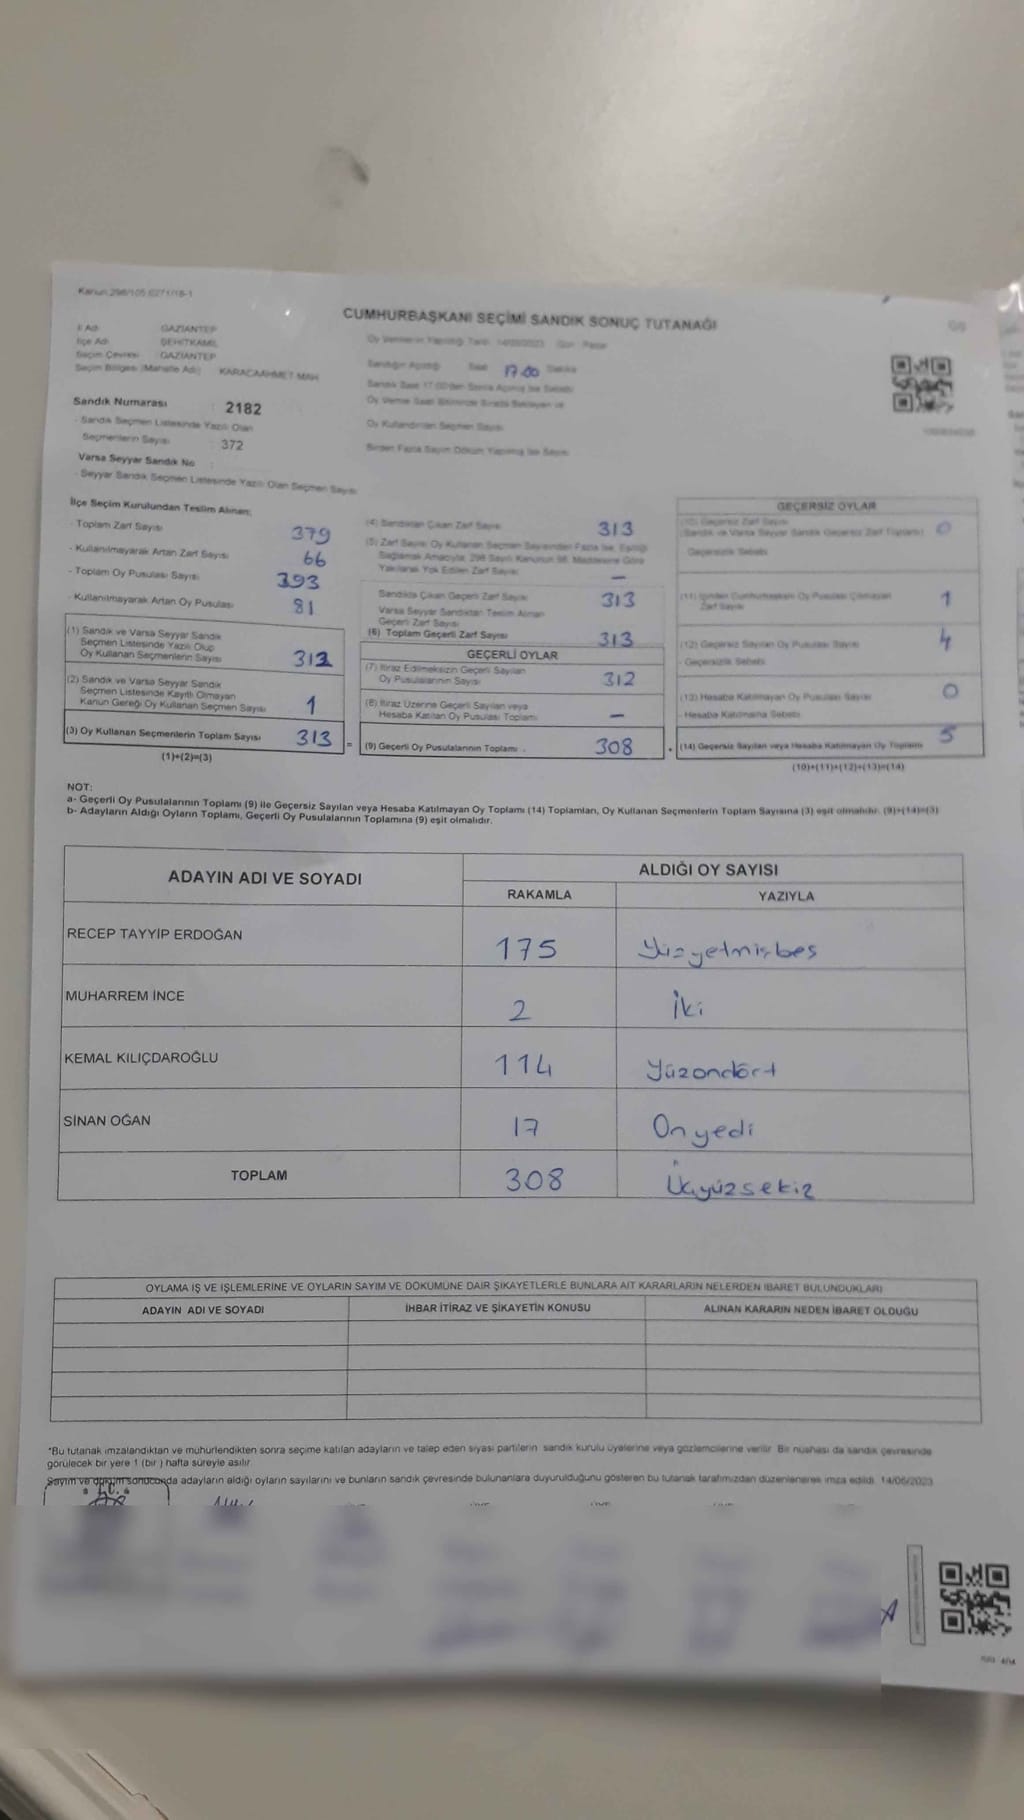 Kanun 298/105,6271/18-1
CUMHURBAŞKANI SEÇİMİ SANDIK SONUÇ TUTANAĞI
İl Adı GAZİANTEP
İlçe Adı ŞEHİTKAMİL
Seçim Çevresi GAZİANTEP
Seçim Bölgesi (Mahalle Adı) KARACAAHMET MAH
Oy Vermenin Yapıldığı Tarih 14/05/2023 Gün Pazar
Sandığın Açıldığı Saat 17.00 Dakika
Sandık Saat 17:00'den Sonra Açılmış İse Sebebi
Oy Verme Saat Bitiminde Sırada Bekleyen ve
Oy Kullandırılan Seçmen Sayısı
Birden Fazla Sayım Döküm Yapılmış İse Sayısı
Sandık Numarası : 2182
- Sandık Seçmen Listesinde Yazılı Olan
Seçmenlerin Sayısı : 372
Varsa Seyyar Sandık No :
- Seyyar Sandık Seçmen Listesinde Yazılı Olan Seçmen Sayısı
İlçe Seçim Kurulundan Teslim Alınan;
- Toplam Zarf Sayısı 379
- Kullanılmayarak Artan Zarf Sayısı 66
- Toplam Oy Pusulası Sayısı 393
- Kullanılmayarak Artan Oy Pusulası 81
(1) Sandık ve Varsa Seyyar Sandık
Seçmen Listesinde Yazılı Olup
Oy Kullanan Seçmenlerin Sayısı 312
(2) Sandık ve Varsa Seyyar Sandık
Seçmen Listesinde Kayıtlı Olmayan
Kanun Gereği Oy Kullanan Seçmen Sayısı 1
(3) Oy Kullanan Seçmenlerin Toplam Sayısı 313 =
(1)+(2)=(3)
(4) Sandıktan Çıkan Zarf Sayısı 313
(5) Zarf Sayısı Oy Kullanan Seçmen Sayısından Fazla İse, Eşitliği
Sağlamak Amacıyla; 298 Sayılı Kanunun 98. Maddesine Göre
Yakılarak Yok Edilen Zarf Sayısı —
Sandıkta Çıkan Geçerli Zarf Sayısı 313
Varsa Seyyar Sandıktan Teslim Alınan
Geçerli Zarf Sayısı
(6) Toplam Geçerli Zarf Sayısı 313
GEÇERLİ OYLAR
(7) İtiraz Edilmeksizin Geçerli Sayılan
Oy Pusulalarının Sayısı 312
(8) İtiraz Üzerine Geçerli Sayılan veya
Hesaba Katılan Oy Pusulası Toplamı —
(9) Geçerli Oy Pusulalarının Toplamı 308 +
GEÇERSİZ OYLAR
(10) Geçersiz Zarf Sayısı
(Sandık ve Varsa Seyyar Sandık Geçersiz Zarf Toplamı) 0
Geçersizlik Sebebi
(11) İçinden Cumhurbaşkanı Oy Pusulası Çıkmayan
Zarf Sayısı 1
(12) Geçersiz Sayılan Oy Pusulası Sayısı 4
- Geçersizlik Sebebi
(13) Hesaba Katılmayan Oy Pusulası Sayısı 0
- Hesaba Katılmama Sebebi
(14) Geçersiz Sayılan veya Hesaba Katılmayan Oy Toplamı 5
(10)+(11)+(12)+(13)=(14)
NOT:
a- Geçerli Oy Pusulalarının Toplamı (9) ile Geçersiz Sayılan veya Hesaba Katılmayan Oy Toplamı (14) Toplamları, Oy Kullanan Seçmenlerin Toplam Sayısına (3) eşit olmalıdır. (9)+(14)=(3)
b- Adayların Aldığı Oyların Toplamı, Geçerli Oy Pusulalarının Toplamına (9) eşit olmalıdır.
ADAYIN ADI VE SOYADI ALDIĞI OY SAYISI
RAKAMLA YAZIYLA
RECEP TAYYİP ERDOĞAN 175 Yüzyetmişbeş
MUHARREM İNCE 2 İki
KEMAL KILIÇDAROĞLU 114 Yüzondört
SİNAN OĞAN 17 Onyedi
TOPLAM 308 Üçyüzsekiz
OYLAMA İŞ VE İŞLEMLERİNE VE OYLARIN SAYIM VE DÖKÜMÜNE DAİR ŞİKAYETLERLE BUNLARA AİT KARARLARIN NELERDEN İBARET BULUNDUKLARI
ADAYIN ADI VE SOYADI İHBAR İTİRAZ VE ŞİKAYETİN KONUSU ALINAN KARARIN NEDEN İBARET OLDUĞU
*Bu tutanak imzalandıktan ve mühürlendikten sonra seçime katılan adayların ve talep eden siyasi partilerin sandık kurulu üyelerine veya gözlemcilerine verilir. Bir nüshası da sandık çevresinde
görülecek bir yere 1 (bir ) hafta süreyle asılır.
Sayım ve döküm sonucunda adayların aldığı oyların sayılarını ve bunların sandık çevresinde bulunanlara duyurulduğunu gösteren bu tutanak tarafımızdan düzenlenerek imza edildi. 14/05/2023
T.C.